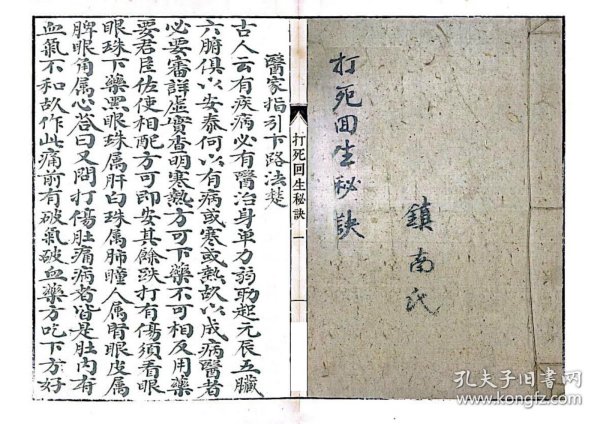 打死回生秘訣
鎮南氏
打死回生秘訣 一
醫家指引下路法楚
古人云有疾病必有醫治身单力弱動起元辰五臟
六腑俱以安泰何以有病或寒或熱故以成病醫者
必要審詳虛實查明寒熱方可下藥不可相反用藥
要君臣佐使相配方可即安其餘跌打有傷須看眼
眼珠下藥黑眼珠属肝白珠属肺瞳人属腎眼皮属
脾眼角属心答曰又問打傷肚痛病者皆是肚内有
血氣不和故作此痛前有破氣破血藥方吃下方好
孔夫子旧书网
www.kongfz.com